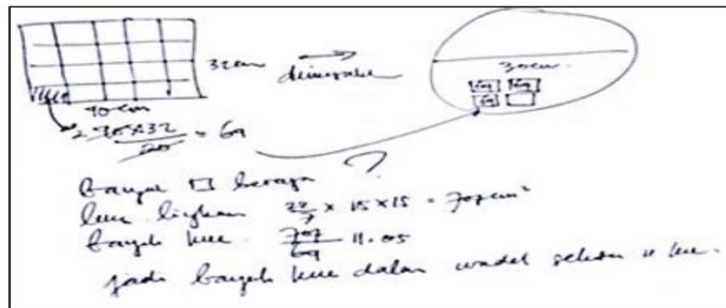 32 cm
30 cm.
40 cm
40 × 32 = 64
20
64 64
64
?
Banyak □ berapa
luas lingkaran 22/7 × 15 × 15 = 707 cm²
banyak kue 707/64 = 11.05
jadi banyak kue dalam wadah sekitar 11 kue.